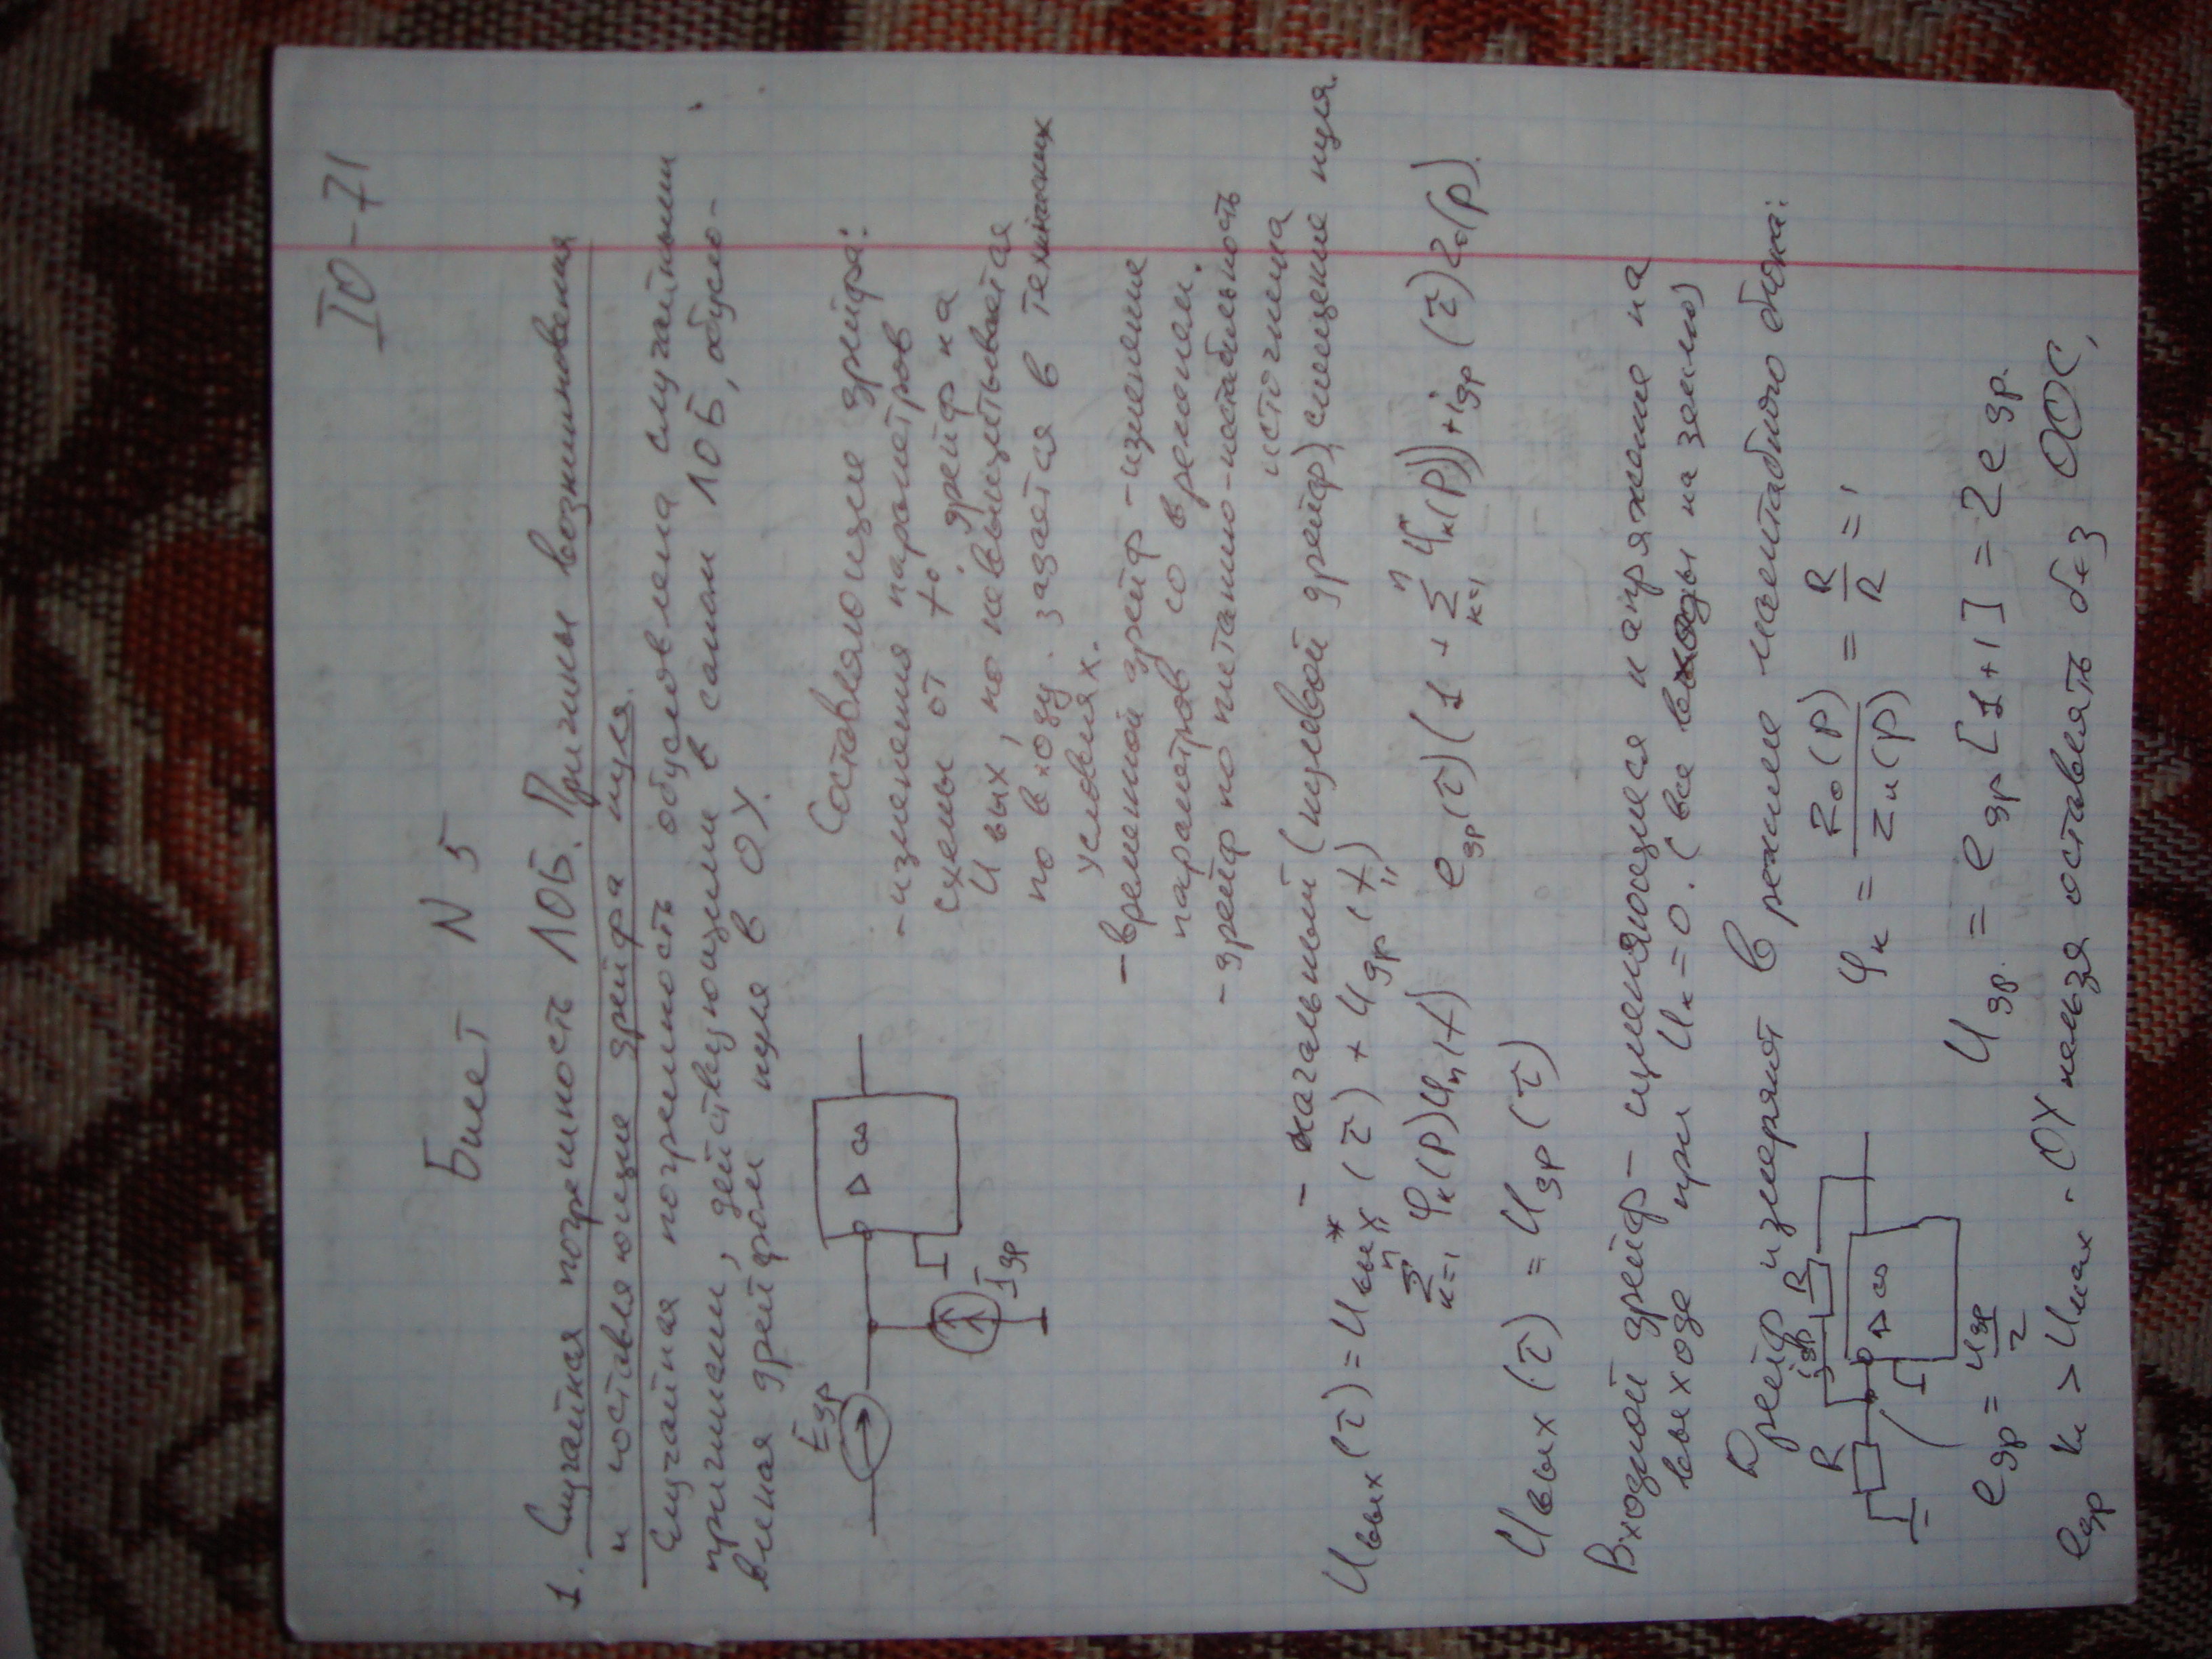 IO-71
Билет N 5
1. Случайная погрешность ЛОБ. Причины возникновения
и составляющие дрейфа нуля.
Случайная погрешность обусловлена случайными
причинами, действующими в самом ЛОБ, обусло-
вленая дрейфом нуля в ОУ.
Eдр
▷ ∞
Iдр
Составляющие дрейфа:
- изменения параметров
схемы от t°. дрейф на
Uвых, но
по входу. задается в технических
условиях.
- временной дрейф - изменение
параметров со временем.
- дрейф по питанию - нестабильность
источника
- начальный (нулевой дрейф) смещение нуля.
Uвых(τ) = Uвых*(τ) + Uдр(t)
n Σ k=1 φк(p)Uп(t)
eдр(τ)(1 + n Σ k=1 φк(p)) + iдр(τ)Zо(p).
Uвых(τ) = Uдр(τ)
Входной дрейф -
выходе при Uк=0. (все входы на землю)
Дрейф измеряют в режиме масштабного блока:
R
iдр
R
▷ ∞
φк = Zо(p) / Zк(p) = R / R = 1
Uдр. = eдр [1+1] = 2 eдр.
eдр = Uдр / 2
eдр к > Uмах. ОУ нельзя оставлять без ООС,